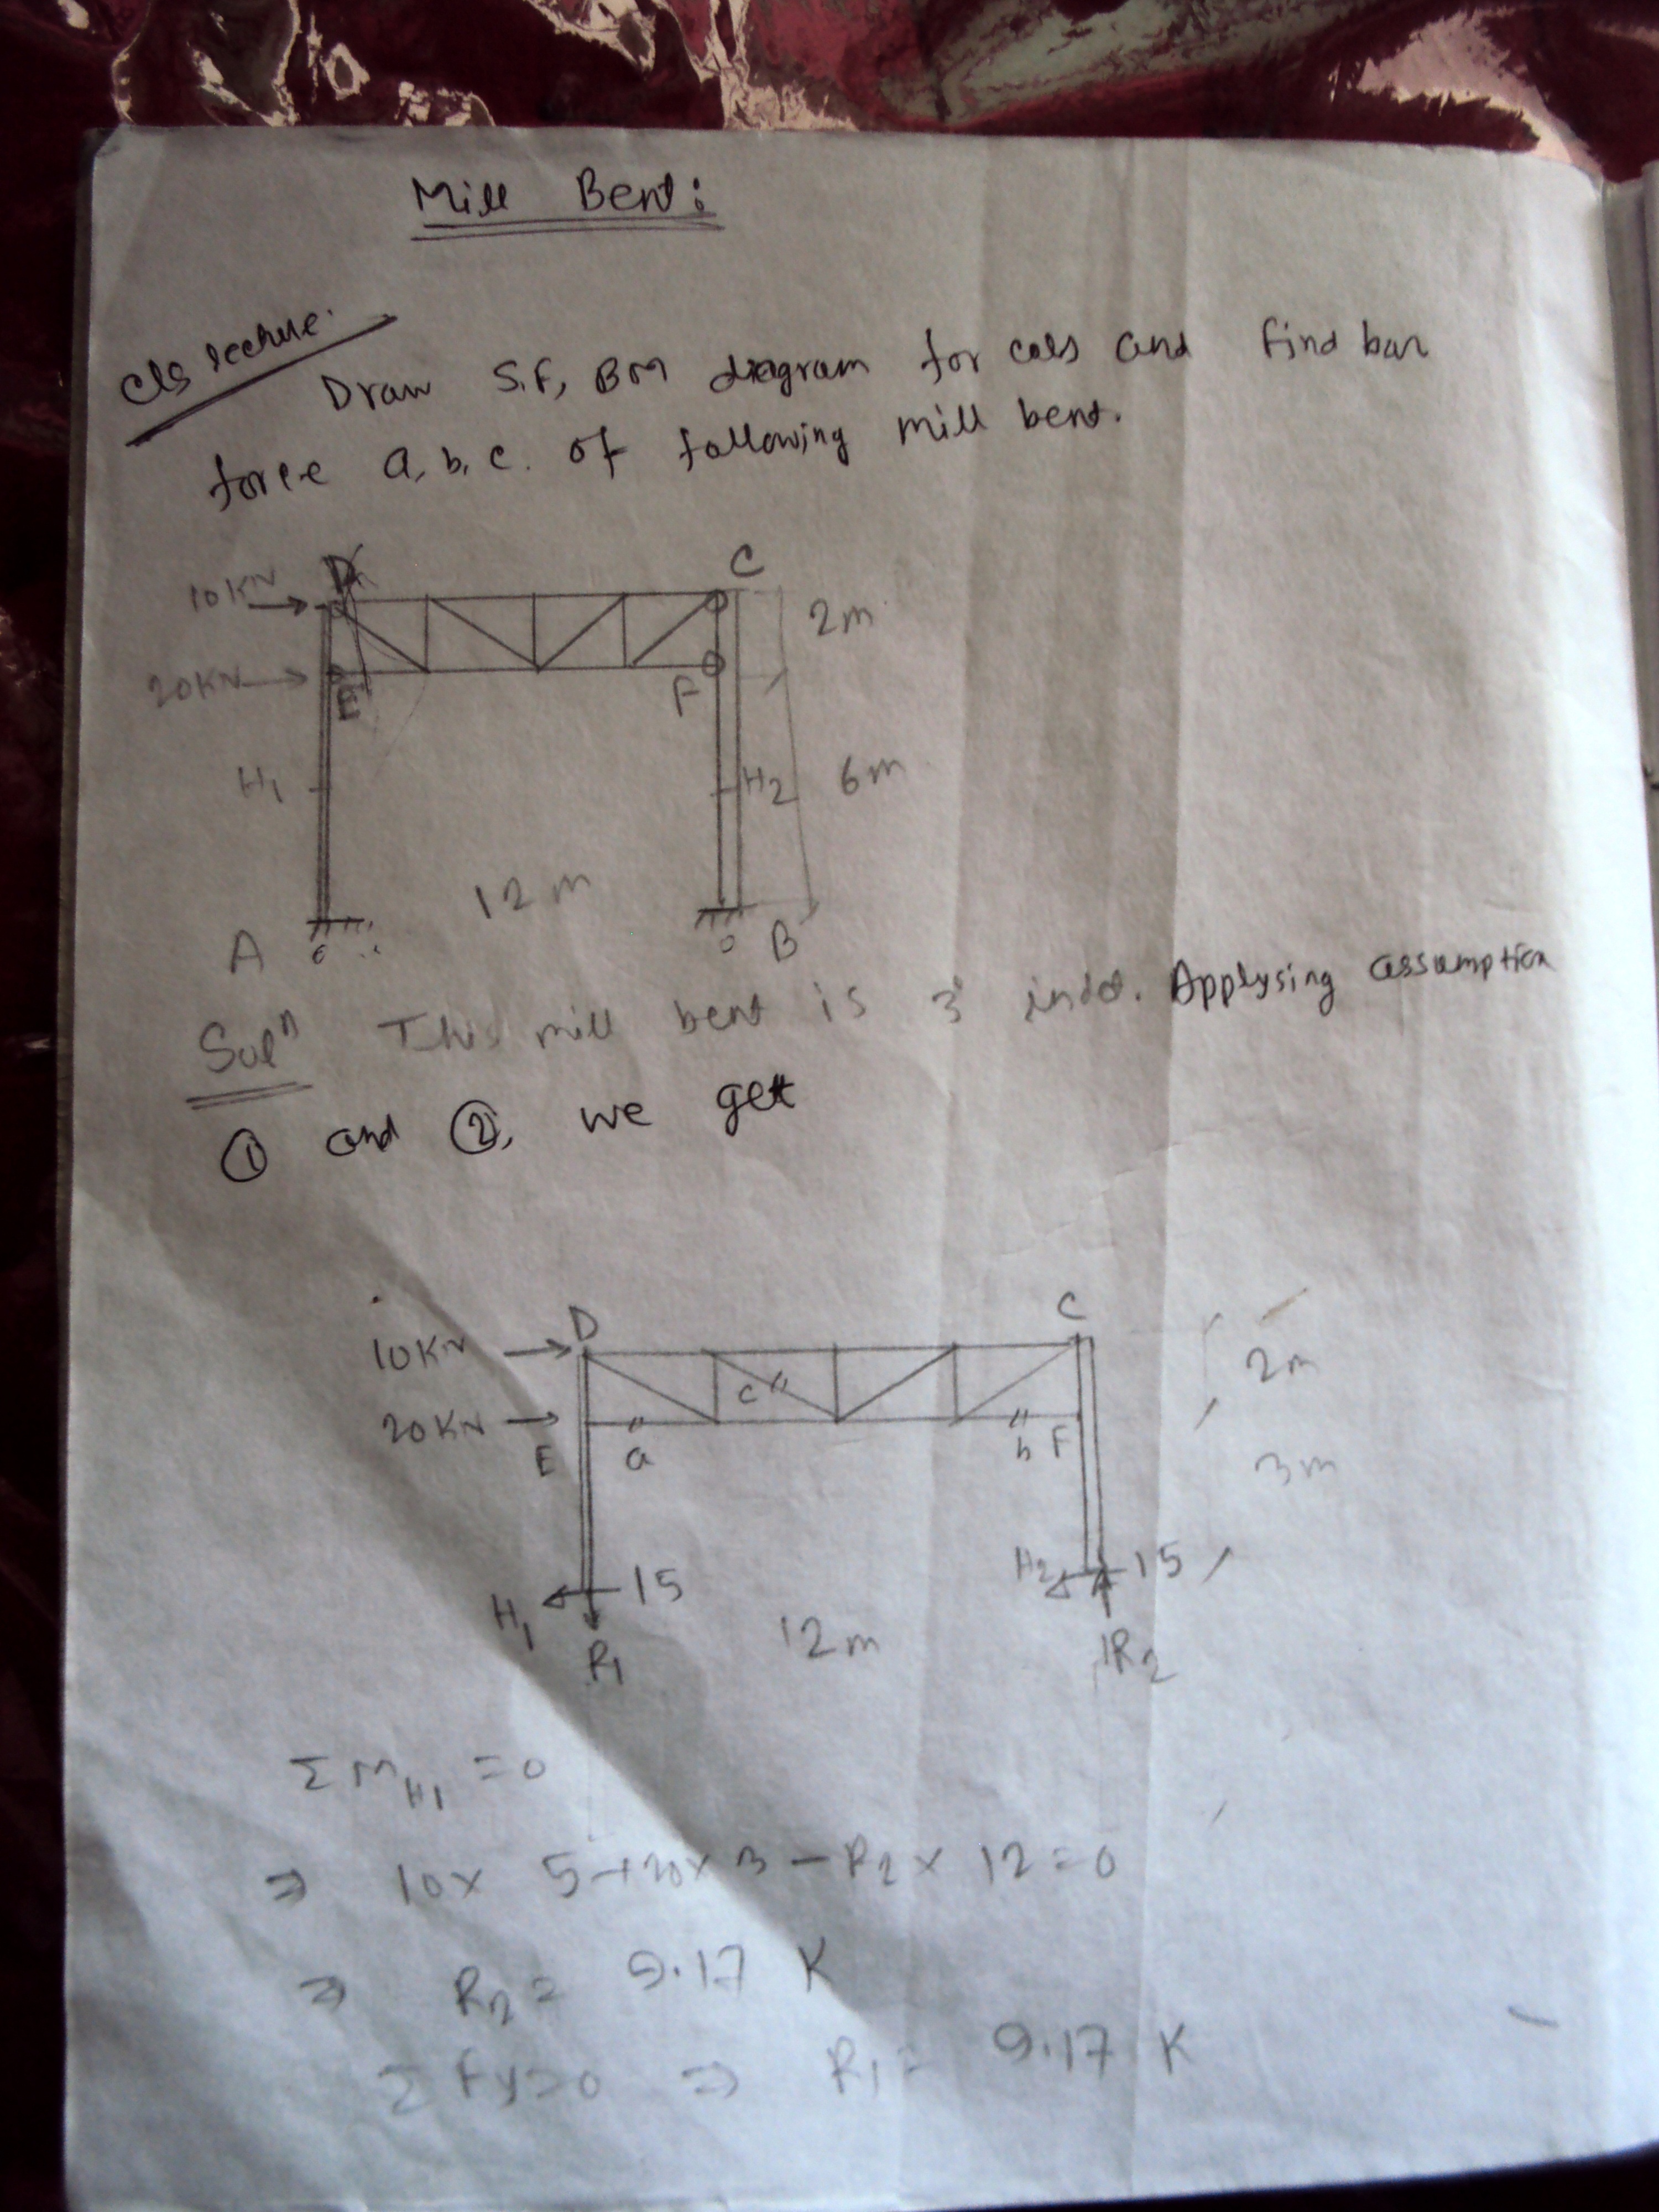 Mill Bent:
Cls lecture.
Draw S.F, BM diagram for cols and find bar
force a, b, c. of following mill bent.
D
C
10KN
2m
20KN
E
F
H1
H2
6m
12m
A
B
Solⁿ This mill bent is 3° indet. Applysing assumption
① and ②, we get
D
C
10KN
2m
c
20KN
E
a
b
F
3m
H1
15
H2
15
R1
12m
R2
ΣM_H1 = 0
⇒ 10 x 5 + 20 x 3 - R2 x 12 = 0
⇒ R2 = 9.17 K
ΣFy=0 ⇒ R1 = 9.17 K